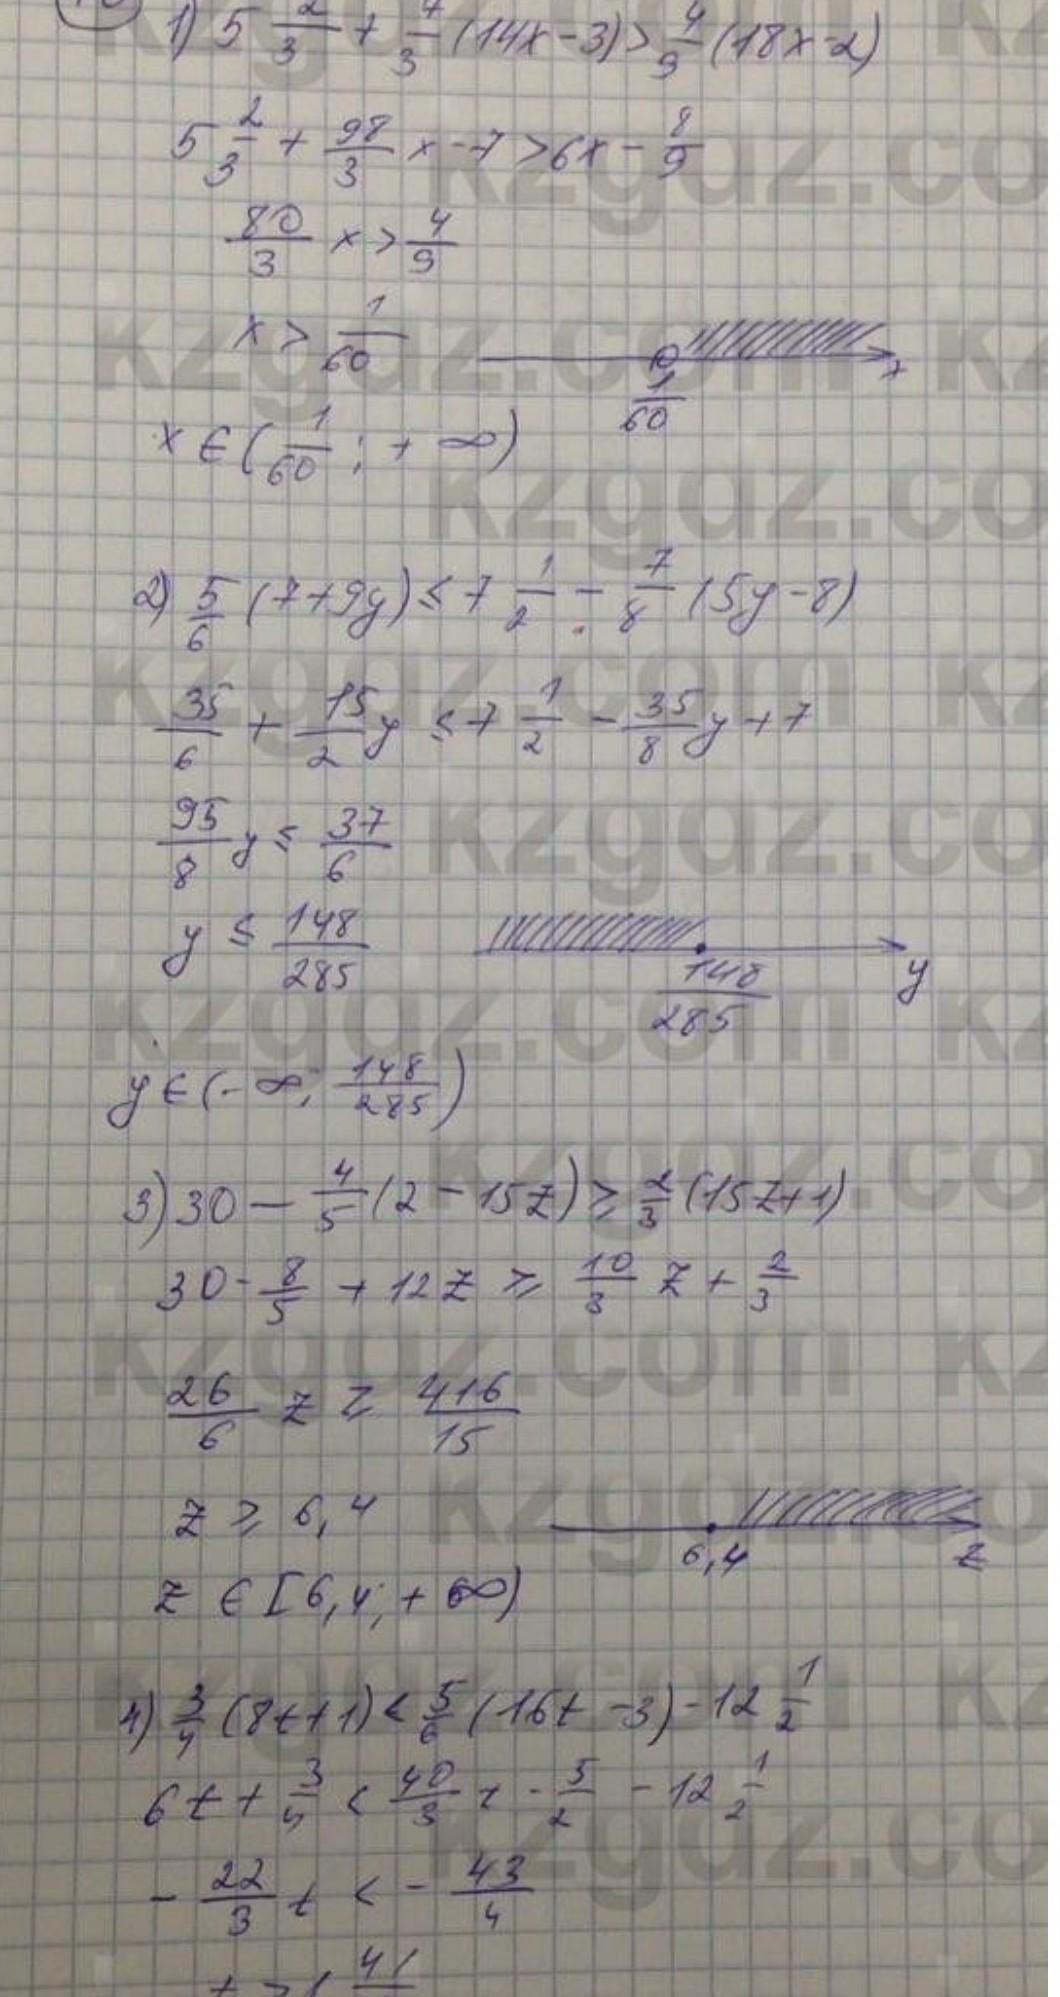 1) 5 2/3 + 7/3 (14x - 3) > 4/9 (18x - 2)
5 2/3 + 98/3 x - 7 > 6x - 8/9
80/3 x > 4/9
x > 1/60
x
1/60
x ∈ (1/60 ; + ∞)
2) 5/6 (7 + 9y) ≤ 7 1/2 - 7/8 (5y - 8)
35/6 + 15/2 y ≤ 7 1/2 - 35/8 y + 7
95/8 y ≤ 37/6
y ≤ 148/285
148/285 y
y ∈ (- ∞; 148/285)
3) 30 - 4/5 (2 - 15z) ≥ 2/3 (15z + 1)
30 - 8/5 + 12z ≥ 10/3 z + 2/3
26/6 z ≥ 416/15
z ≥ 6,4
6,4 z
z ∈ [6,4; + ∞)
4) 3/4 (8t + 1) < 5/6 (16t - 3) - 12 1/2
6t + 3/4 < 40/3 t - 5/2 - 12 1/2
- 22/3 t < - 43/4
kzgdz.com